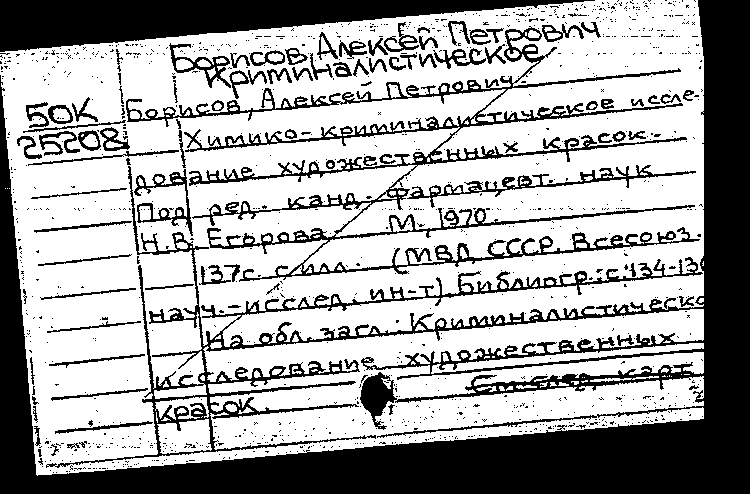 Борисов, Алексей Петрович
Криминалистическое
50К Борисов, Алексей Петрович.
25208 Химико-криминалистическое иссле-
дование художественных красок.
Под ред. канд. фармацевт. наук
Н.В. Егорова. М., 1970.
137с. с илл. (МВД СССР. Всесоюз.
науч.-исслед. ин-т). Библиогр.: с. 134-136
На обл. загл.: Криминалистическо
исследование художественных
красок.
См. след. карт